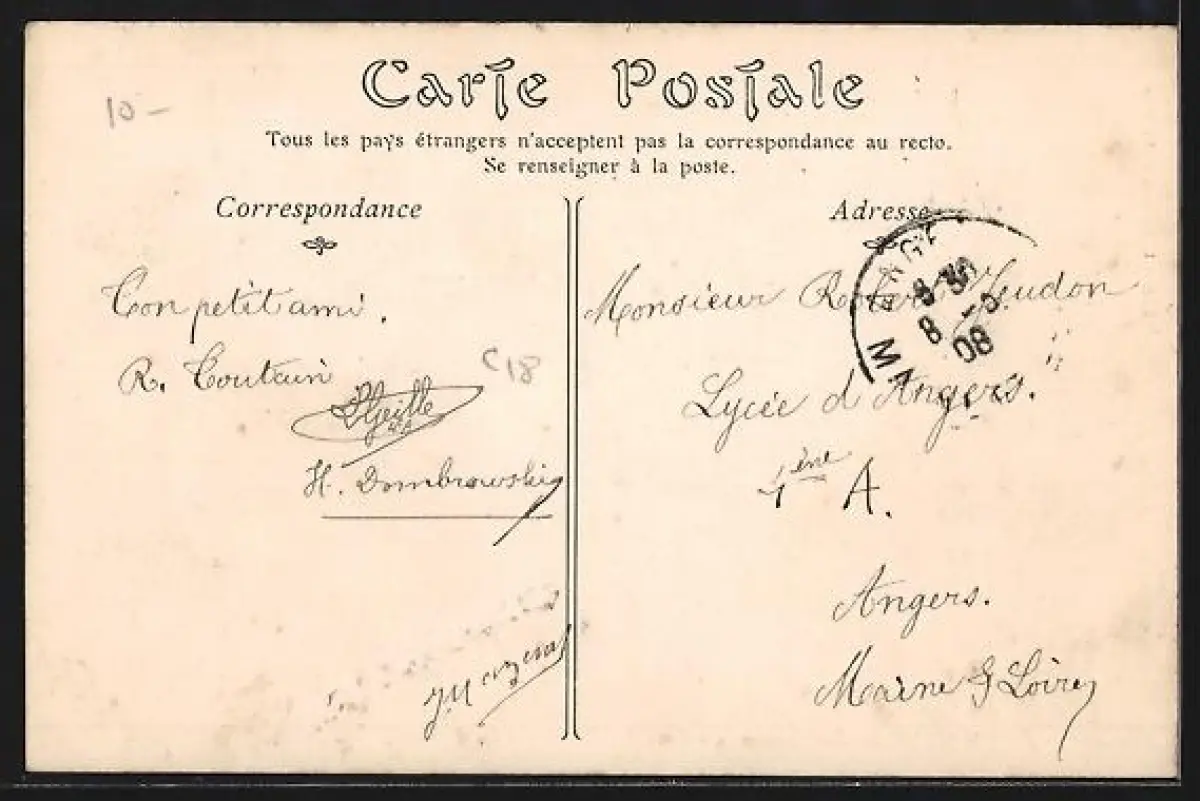 10 –
Carte Postale
Tous les pays étrangers n'acceptent pas la correspondance au recto.
Se renseigner à la poste.
Correspondance
Ton petit ami.
R. Toutain
C18
H. Dombrowski
Adresse
8-30
8-5
08
Monsieur Robert
Lycée d'Angers.
1ère A.
Angers.
Maine & Loire